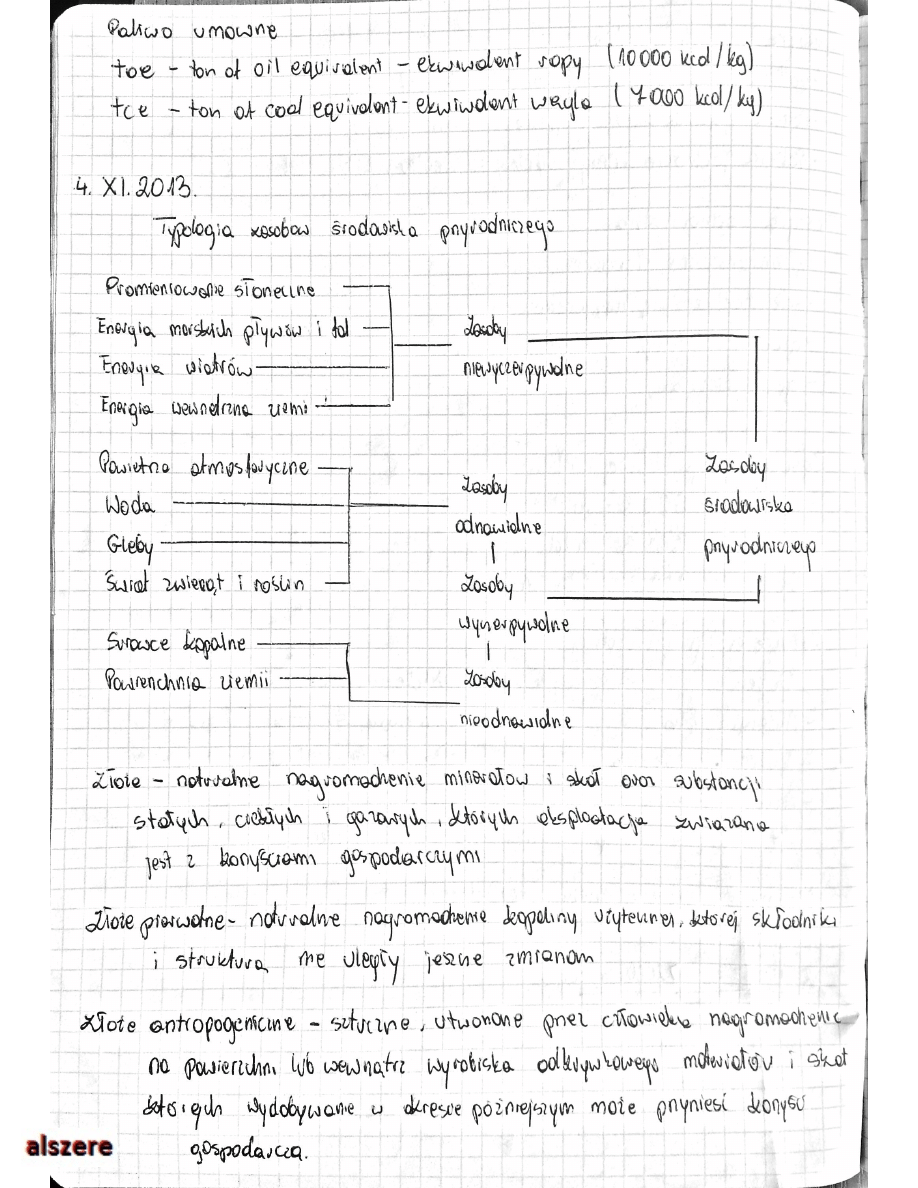 Paliwo umowne
toe – ton of oil equivalent – ekwiwalent ropy (10 000 kcal/kg)
tce – ton of coal equivalent – ekwiwalent węgla (7 000 kcal/kg)
4. XI. 2013.
Typologia zasobów środowiska przyrodniczego
Promieniowanie słoneczne
Energia morskich pływów i fal
Zasoby
Energia wiatrów
niewyczerpywalne
Energia wewnętrzna ziemi
Powietrze atmosferyczne
Zasoby
Zasoby
Woda
środowiska
odnawialne
Gleby
przyrodniczego
Świat zwierząt i roślin
Zasoby
wyczerpywalne
Surowce kopalne
Powierzchnia ziemii
Zasoby
nieodnawialne
Złoże – naturalne nagromadzenie minerałów i skał oraz substancji
stałych, ciekłych i gazowych, których eksploatacja związana
jest z korzyściami gospodarczymi
Złoże pierwotne – naturalne nagromadzenie kopaliny użytecznej, której składniki
i struktura nie uległy jeszcze zmianom
Złoże antropogeniczne – sztuczne, utworzone przez człowieka nagromadzenie
na powierzchni lub wewnątrz wyrobiska odkrywkowego materiałów i skał
których wydobywanie w okresie późniejszym może przynieść korzyść
gospodarczą.
alszere